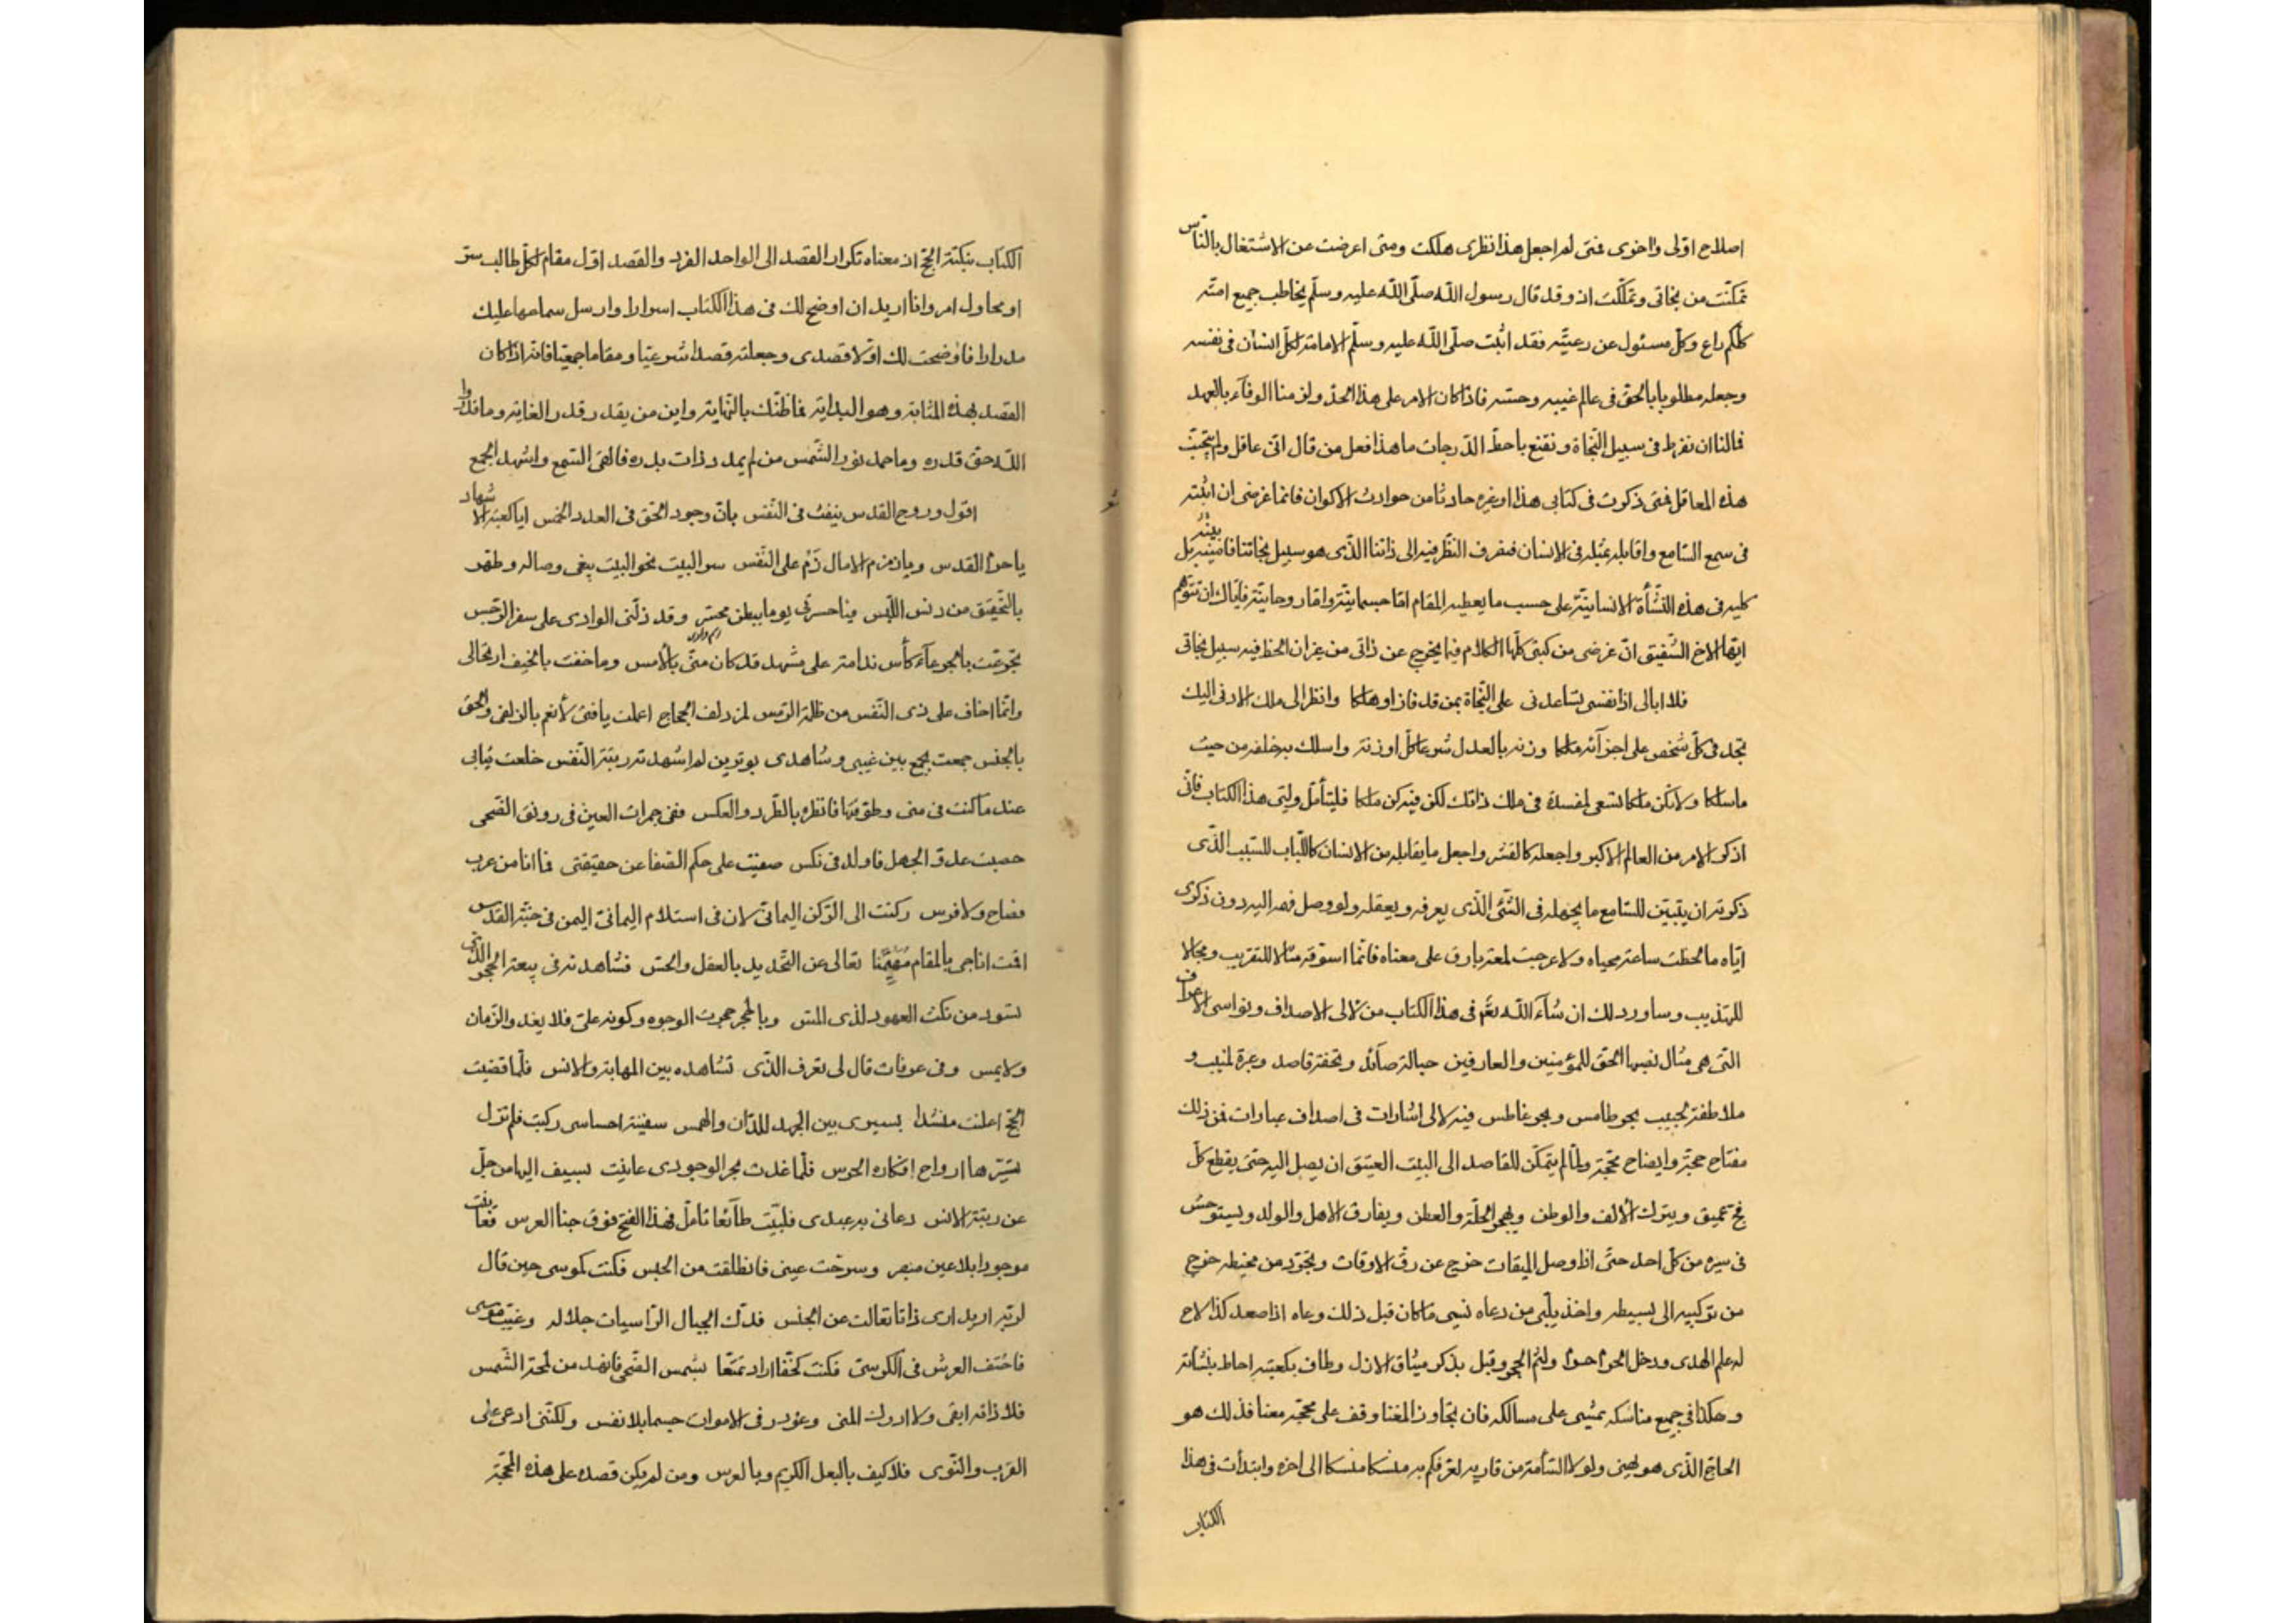 اصلاح اولى واخرى فمتى لم اجعل هذا نظرى هلكت ومتى اعرضت عن الاشتغال بالناس
تمكنت من نجاتى وتملكت اذ وقد قال رسول الله صلّى الله عليه وسلّم يخاطب جميع امته
كلكم راع وكل مسئول عن رعيته فقد اثبت صلّى الله عليه وسلّم الامامة لكل انسان فى نفسه
وجعله مطلوبا بالحق فى عالم غيبه وحسه فاذا كان الامر على هذا الحد ولزمنا الوفآء بالعهد
فمالنا ان نفرط فى سبيل النجاة ونقنع باحط الدرجات ما هذا فعل من قال انى عاقل ولم يتجنب
هذه المعاقل فمتى ذكرت فى كتابى هذا او غيره حادثا من حوادث الاكوان فانما غرضى ان اثبته
فى سمع السامع واقابله بمثله فى الانسان فنصرف النظر فيه الى ذاتنا الذى هو سبيل نجاتنا فامشيه بل
كليه فى هذه النشأة الانسانية على حسب ما يعطيه المقام اما جسمانية واما روحانية فاياك ان تتوهم
ايها الاخ الشفيق ان غرضى من كتبى كلها الكلام فيما يخرج عن ذاتى من غير ان الحظ فيه سبيل نجاتى
فلا ابالى اذا نفسى تساعدنى على النجاة بمن قد فاز او هلكا وانظر الى ملك الادنى اليك
تجد فى كل شخص على اجزآئه ملكا وزنه بالعدل شرعا كل اونة واسلك به خلفه من حيث
ما سلكا ولا تكن ملكا تسعى لمفسدة فى ملك ذاتك لكن فيه كن ملكا فليتأمل وليى هذا الكتاب فانى
اذكر الامر من العالم الاكبر واجعله كالقشر واجعل ما يقابله من الانسان كاللباب للسبب الذى
ذكرته ان يتبين للسامع ما يجهله فى الشئ الذى يعرفه ويعقله ولو وصل فهم اليه دون ذكرى
اياه ما لحظت ساعة محياه ولا عرجت لمعة بارق على معناه فانما اسوقه مثالا للتقريب ومجالا
للتهذيب وساورد لك ان شآء الله تعم فى هذا الكتاب من لالى الاصداف ونواسى الاعراف
التى هى مثال نصبها الحق للمؤمنين والعارفين حبالة صآئد وتحفة قاصد وعبرة لبيب و
ملاطفة حبيب بحر طامس وبحر غاطس فيه لالى اشارات فى اصداف عبارات فمن ذلك
مفتاح حجة وايضاح محجة ولما لم يتمكن للقاصد الى البيت العتيق ان يصل اليه حتى يقطع كل
فج عميق ويترك الألف والوطن ويهجر الخلة والعطن ويفارق الاهل والولد ويستوحش
فى سيره من كل احد حتى اذا وصل الميقات خرج عن رق الاوقات وتجرد من مخيطه خرج
من تركيبه الى بسيطه واخذ يلبى من دعاه نسى ما كان قبل ذلك وعاه اذا صعد كذا لاح
له علم الهدى ودخل الحرم حرم ولثم الحجر وقبل بذكر ميثاق الازل وطاف بكعبته احاط بنشأته
وهكذا فى جميع مناسكه يمشى على مسالكه فان تجاوز المغنا وقف على محجة معنا فذلك هو
الحاج الذى هو يهنى ولولا السآمة من قاريه لعرفكم به منسكا منسكا الى اخره وابتدأت فى هذا
الكتاب
الكتاب بنكتة الحج اذ معناه تكرار القصد الى الواحد الفرد والقصد اول مقام لكل طالب سر
او محاول امر وانا اريد ان اوضح لك فى هذا الكتاب اسرارا وارسل سماءها عليك
مدرارا فاوضحت لك اولا قصدى وجعلته قصدا شرعيا ومقاما جمعيا فانه اذا كان
القصد بهذه المثابة وهو البداية فما ظنك بالنهاية واين من يقدر قدر الغاية وما قدروا
الله حق قدره وما حمد نور الشمس من لم يمد ذات بدره فالقى السمع واشهد الجمع
اقول وروح القدس ينفث فى النفس بان وجود الحق فى العدد الخمس ايا كعبة الاشهاد
يا حرم القدس ويا زمزم الامال زم على النفس سر البيت نحو البيت يبغى وصاله وطهر
بالتحقيق من دنس اللبس فيا حسرتى يوما ببطن محسر وقد ذلنى الوادى على سقر الرجس
تجرعت بالجرعآء كأس ندامة على مشهد قد كان منى بالأمس وما خفت بالخيف ارتحالى
وانما اخاف على ذى النفس من ظلمة الرمس لمزدلف الحجاج اعملت يا فتى لأنعم بالزلفى والحق
بالجنس جمعت بجمع بين غيبى وشاهدى بوترين لم اشهد تهرتبة النفس خلعت ثيابى
عند ما كنت فى منى وطوفتها فانظره بالطرد والعكس ففى جمرات العين فى رونق الضحى
حصبت عدو الجهل فاولد فى نكس صفيت على حكم الصفا عن حقيقتى فما انا من عرب
فصاح ولا فرس ركنت الى الركن اليمانى لان فى استلام اليمانى اليمن فى جنة القدس
اقمت اناجى بالمقام مهيمنا تعالى عن التحديد بالعقل والحس فشاهدته فى بيعة الحجر الذى
تسود من نكث العهود لذى المس وبالحجر حجرت الوجود وكونه على فلا يغدو الزمان
ولا يمس وفى عرفات قال لى تعرف الذى تشاهده بين المهابة والانس فلما قضيت
الحج اعلنت منشدا بسيرى بين الجهد للذات والهمس سفينة احساسى ركبت فلم تزل
تسيرها ارواح افكاره الخرس فلما غدت بحر الوجود وعاينت بسيف النهى من جل
عن رتبة الانس دعانى به عبدى فلبيت طآئعا تامل فهذا الفتح فوق جنا الغرس فعاينت
موجودا بلا عين مبصر وسرحت عينى فانطلقت من الحبس فكنت كموسى حين قال
لربه اريد ارى ذاتا تعالت عن الجنس فدك الجبال الراسيات جلاله وغيب موسى
فاختف العرش فى الكرسى فكنت كخفا اراد تمتعا بشمس الضحى فانهد من لمحة الشمس
فلا ذاته ابقى ولا ادرك المنى وغودر فى الاموات جسما بلا نفس ولكننى ادعى على
القرب والنوى فلا كيف بالبعل الكريم وبالعرس ومن لم يكن قصده على هذه المحجة